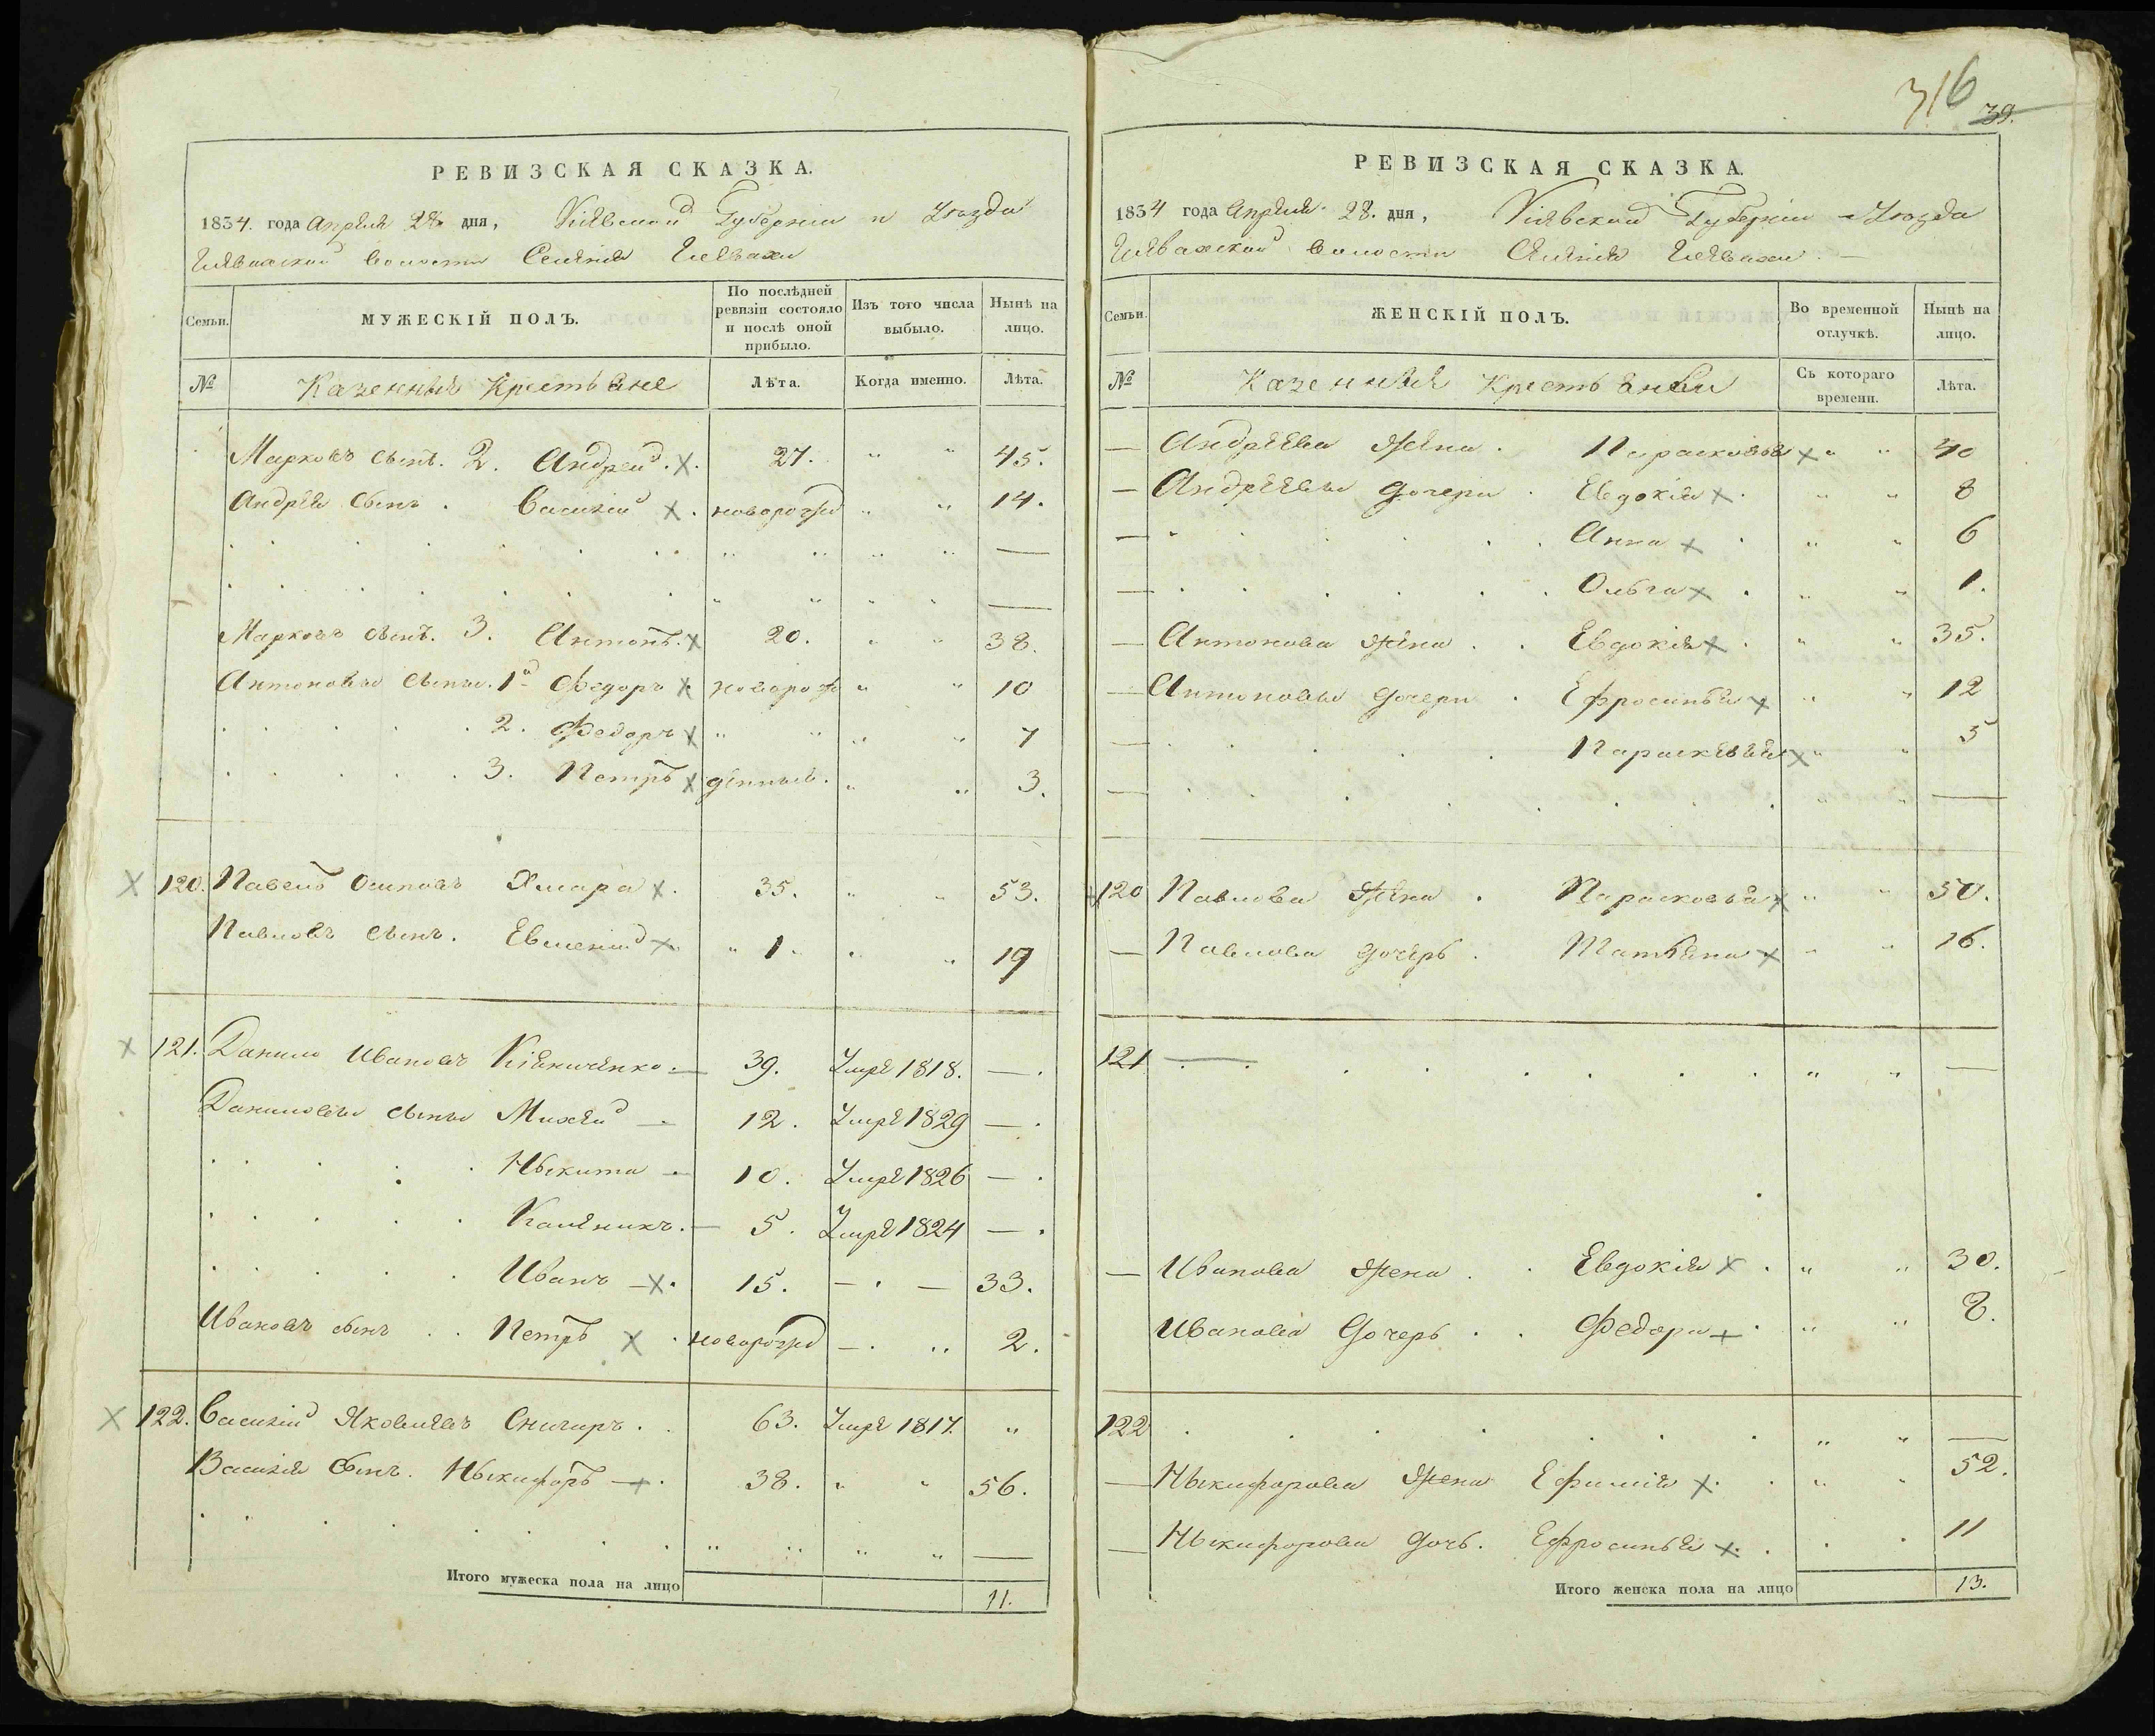 316
39.
РЕВИЗСКАЯ СКАЗКА.
1834. года Апреля 28 дня, Кіевской Губерніи и Уезда
Глевахской волости Селенія Глевахи
Семьи.
МУЖЕСКІЙ ПОЛЪ.
По послѣдней ревизіи состояло и послѣ оной прибыло.
Изъ того числа выбыло.
Нынѣ на лицо.
№ Казенные Крестьяне Лѣта. Когда именно. Лѣта.
Марковъ сынъ. 2. Андрей. х. 27. " " 45.
Андрея сынъ. Василій х. новорожд " " 14.
Марковъ сынъ. 3. Антонъ. х 20. " " 38.
Антоновы сыны. 1й Федоръ х новорож " " 10
2. Федоръ х " " " " 7
3. Петръ х денные. " " 3.
х 120. Павелъ Осиповъ Хмара х. 35. " " 53.
Павловъ сынъ. Евгеній х. " 1. " " 19
х 121. Данило Ивановъ Кіяниченко. — 39. Умре 1818. — .
Даниловы сыны Михей — 12. Умре 1829 — .
Ныкита — 10. Умре 1826 — .
Каленикъ. — 5. Умре 1824 — .
Иванъ — х. 15. — . — 33.
Ивановъ сынъ . . Петръ х . новорожд — . " 2.
х 122. Василій Яковлевъ Снигиръ . . 63. Умре 1817. "
Василія Сынъ. Ныкифоръ — х. 38. " " 56.
Итого мужеска пола на лицо 11.
РЕВИЗСКАЯ СКАЗКА.
1834 года Апреля 28. дня, Кіевской Губерніи и Уезда
Глевахской волости Селенія Глевахи. —
Семьи.
ЖЕНСКІЙ ПОЛЪ.
Во временной отлучкѣ.
Нынѣ на лицо.
№ Казенныя Крестьянки Съ котораго времени. Лѣта.
— Андреева жена . Парасковья х " " 40
— Андреевы дочери . Евдокія х . " " 8
— Анна х . " " 6
— Ольга х . " " 1.
— Антонова жена . . Евдокія х . " " 35.
— Антоновы дочери . Ефросинья х " " 12
— Параскевія х " " 5
х 120 Павлова жена . Парасковья х " " 50.
— Павлова дочерь . Татьяна х " " 16.
121 — " " —
— Иванова жена . . Евдокія х . " " 30.
Иванова дочерь . . Федора х . " " 8.
122 " " —
— Ныкифорова жена Ефимія х . . " " 52.
— Ныкифорова дочь. Ефросинья х . . . . 11
Итого женска пола на лицо 13.